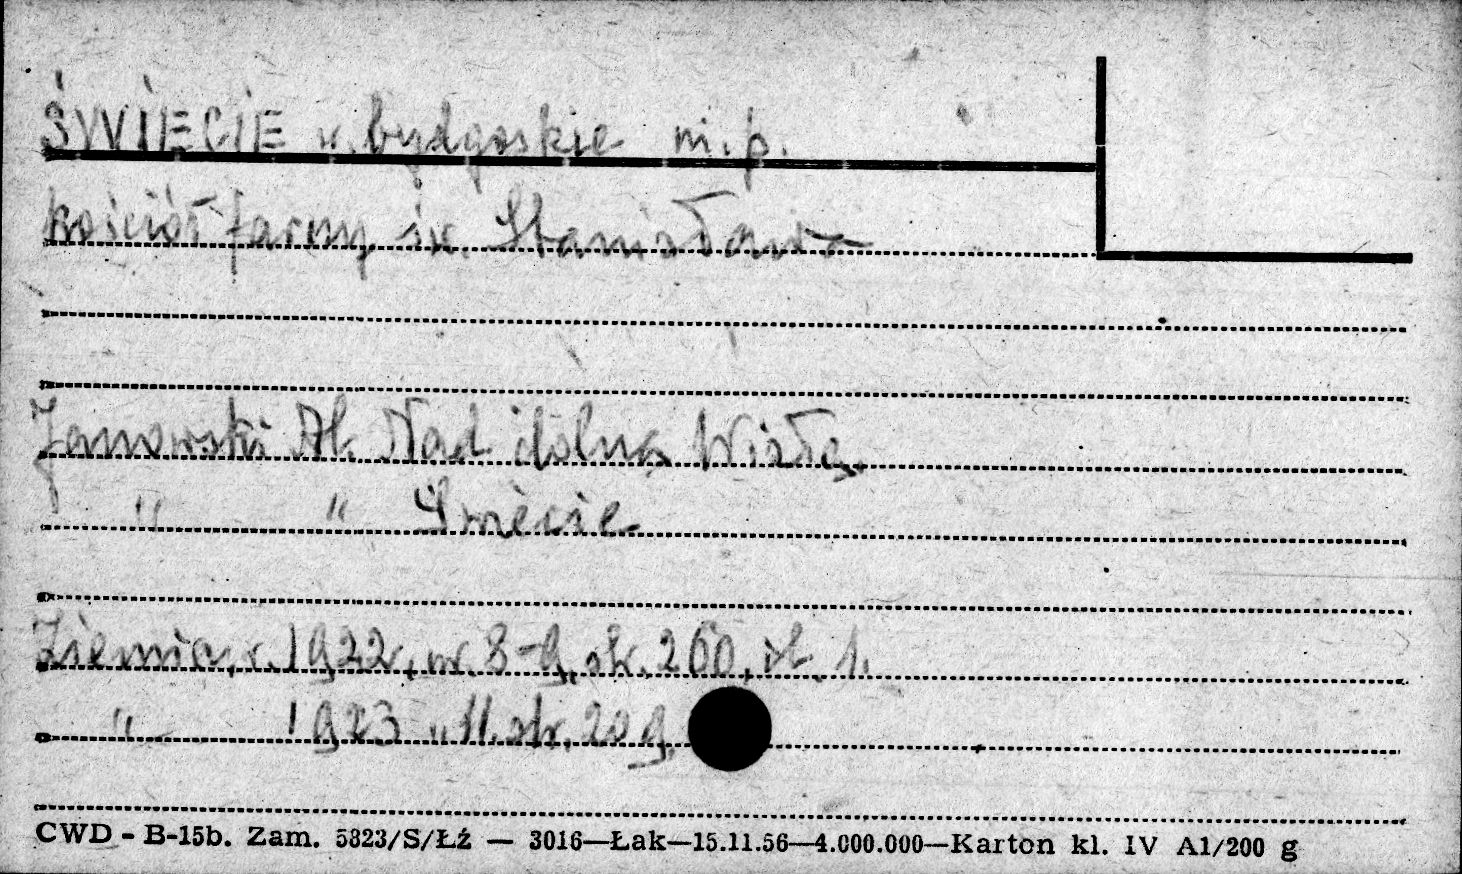 ŚWIECIE w. bydgoskie m.p.
kościół farny św. Stanisława
Janowski Al. Nad dolną Wisłą.
" " Świecie
Ziemia, r. 1922, nr. 8-9, str. 260, il. 1.
" 1923 " 11. str. 209.
CWD - B-15b. Zam. 5823/S/Łź — 3016—Łak—15.11.56—4.000.000—Karton kl. IV A1/200 g